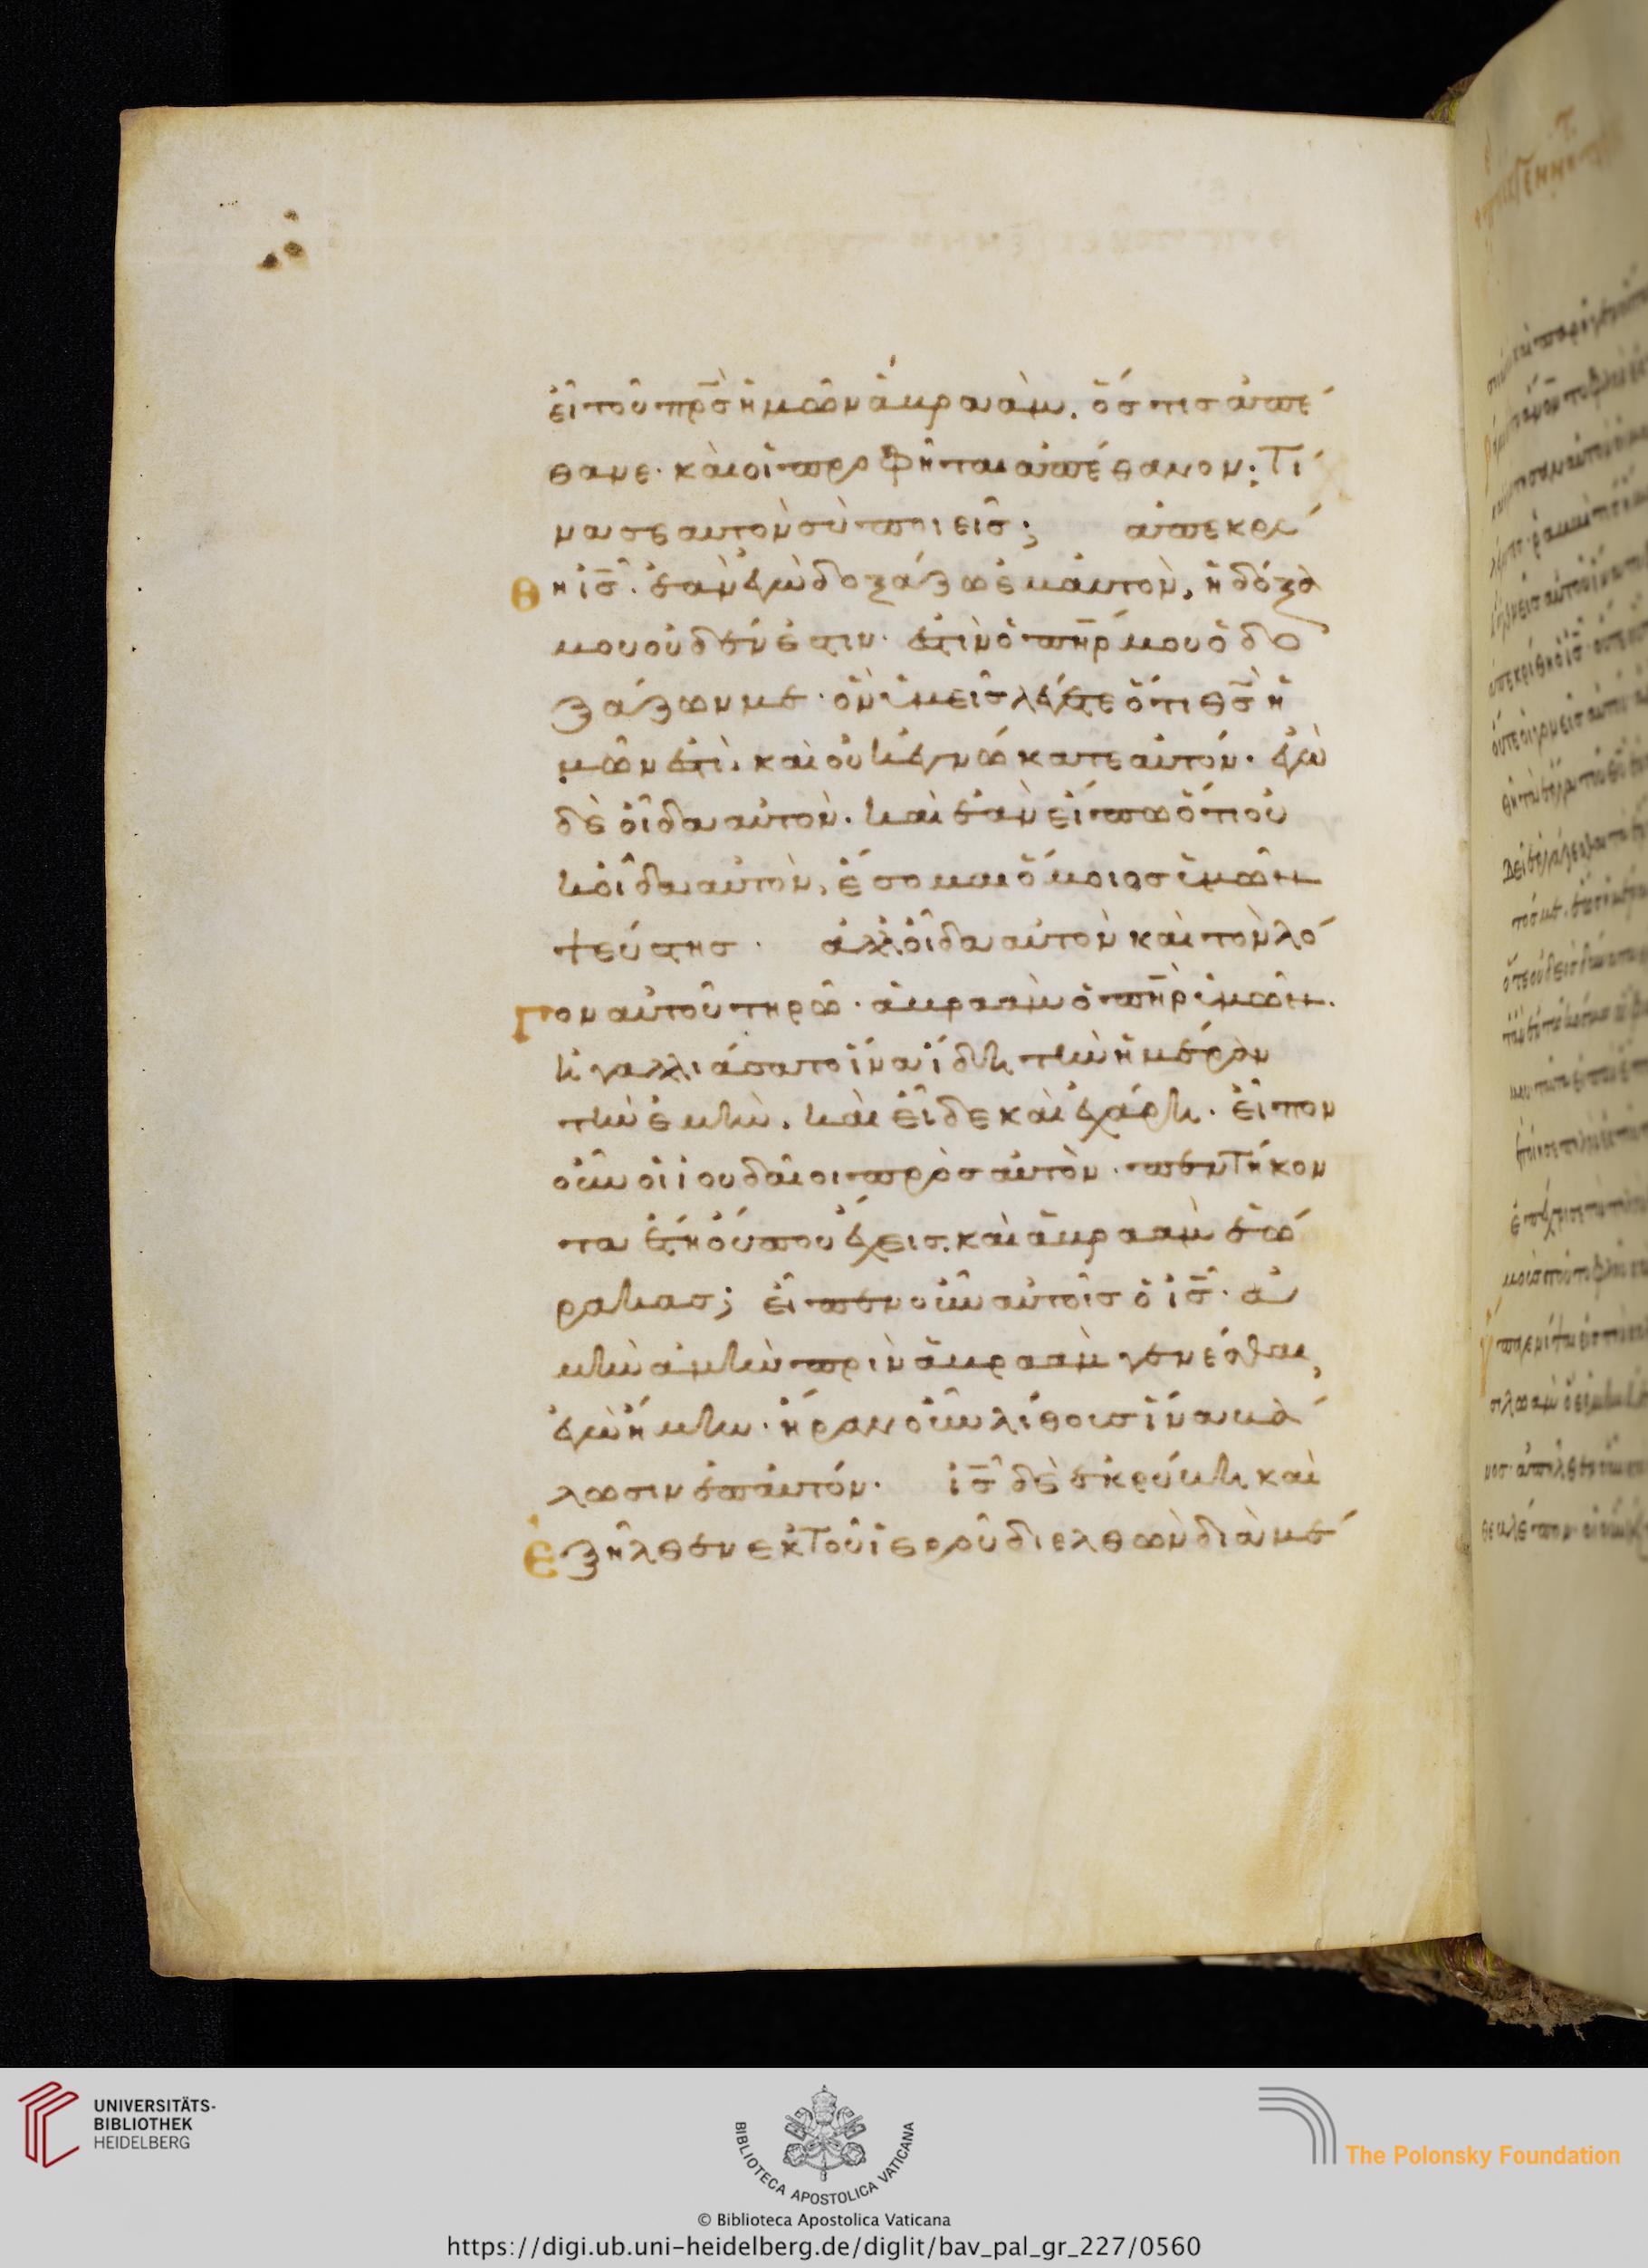 εἶ τοῦ πρ̅ς ἡμῶν ἀβραὰμ, ὅστις ἀπέ
θανε· καὶ οἱ προφῆται ἀπέθανον; Τί
να σεαυτὸν σὺ ποιεῖς; ἀπεκρί
θη ἰ̅ς̅· ἐὰν ἐγὼ δοξάζω ἐμαυτὸν, ἡ δόξα
μου οὐδέν ἐστιν· ἐστὶν ὁ π̅η̅ρ μου ὁ δο
ξάζων με· ὃν ὑμεῖς λέγετε ὅτι θ̅ς̅ ἡ
μῶν ἐστὶ, καὶ οὐκ ἐγνώκατε αὐτόν· ἐγὼ
δὲ οἶδα αὐτὸν· καὶ ἐὰν εἴπω ὅτι οὐ
κ οἶδα αὐτὸν, ἔσομαι ὅμοιος ὑμῶν
ψεύστης· ἀλλ' οἶδα αὐτὸν καὶ τὸν λό
γον αὐτοῦ τηρῶ· ἀβραὰμ ὁ π̅η̅ρ ὑμῶν
ἠγαλλιάσατο ἵνα ἴδη τὴν ἡμέραν
τὴν ἐμὴν, καὶ εἶδε καὶ ἐχάρη· εἶπον
οὖν οἱ ἰουδαῖοι πρὸς αὐτὸν· πεντήκον
τα ἔτη οὔπω ἔχεις, καὶ ἀβραὰμ ἑώ
ρακας; εἶπεν οὖν αὐτοῖς ὁ ἰ̅ς̅· ἀ
μὴν ἀμὴν πρὶν ἀβραὰμ γενέσθαι,
ἐγὼ ἤμην· ἦραν οὖν λίθους ἵνα βά
λωσιν ἐπ' αὐτόν· ἰ̅ς̅ δὲ ἐκρύβη καὶ
ἐξῆλθεν ἐκ τοῦ ἱεροῦ διελθὼν διὰ μέ
UNIVERSITÄTS-
BIBLIOTHEK
HEIDELBERG
BIBLIOTECA APOSTOLICA VATICANA
The Polonsky Foundation
© Biblioteca Apostolica Vaticana
https://digi.ub.uni-heidelberg.de/diglit/bav_pal_gr_227/0560